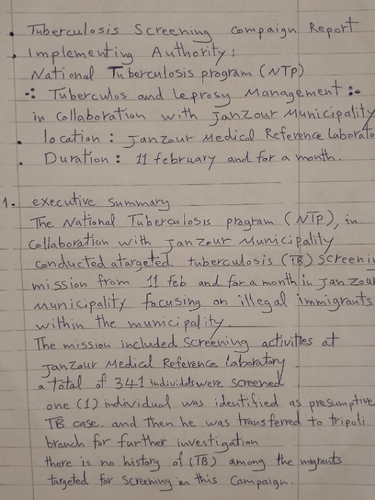 • Tuberculosis Screening Compaign Report
• Implementing Authority:
National Tuberculosis program (NTP)
Tuberculos and Leprosy Management
in collaboration with Janzour Municipality
• location: Janzour Medical Reference Laborato
• Duration: 11 february and for a month.
1. executive summary
The National Tuberculosis program (NTP), in
collaboration with Janzour Municipality
conducted atargeted tuberculosis (TB) Screenin
mission from 11 feb and for a month in Janzour
Municipality focusing on illegal immigrants
within the municipality.
The mission included Screening activities at
Janzour Medical Reference Laboratory.
a total of 341 individls were screened
one (1) individual was identified as presumptive
TB case, and then he was transferred to tripoli
branch for further investigation
there is no history of (TB) among the migrants
targeted for Screening in this Campaign.